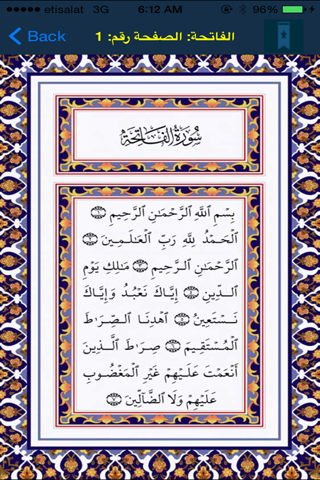 etisalat 3G 6:12 AM 96%
Back الفاتحة: الصفحة رقم: 1
سُورَةُ الفَاتِحَةِ
بِسْمِ اللَّهِ الرَّحْمَٰنِ الرَّحِيمِ ۝ ١
الْحَمْدُ لِلَّهِ رَبِّ الْعَٰلَمِينَ ۝ ٢
الرَّحْمَٰنِ الرَّحِيمِ ۝ ٣ مَٰلِكِ يَوْمِ
الدِّينِ ۝ ٤ إِيَّاكَ نَعْبُدُ وَإِيَّاكَ
نَسْتَعِينُ ۝ ٥ اهْدِنَا الصِّرَٰطَ
الْمُسْتَقِيمَ ۝ ٦ صِرَٰطَ الَّذِينَ
أَنْعَمْتَ عَلَيْهِمْ غَيْرِ الْمَغْضُوبِ
عَلَيْهِمْ وَلَا الضَّالِّينَ ۝ ٧